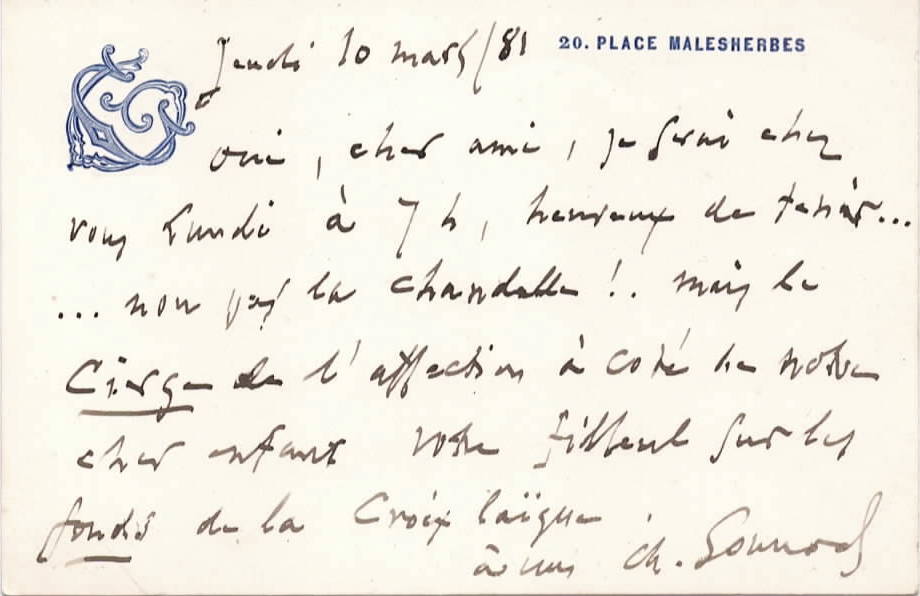 Jeudi 10 mars/81
20. PLACE MALESHERBES
CG
oui, cher ami, je serai chez
vous Lundi à 7 h, heureux de tenir...
... non pas la chandelle !.. mais le
Cierge de l'affection à coté de notre
cher enfant votre filleul sur les
fonds de la Croix laïque.
à vous Ch. Gounod